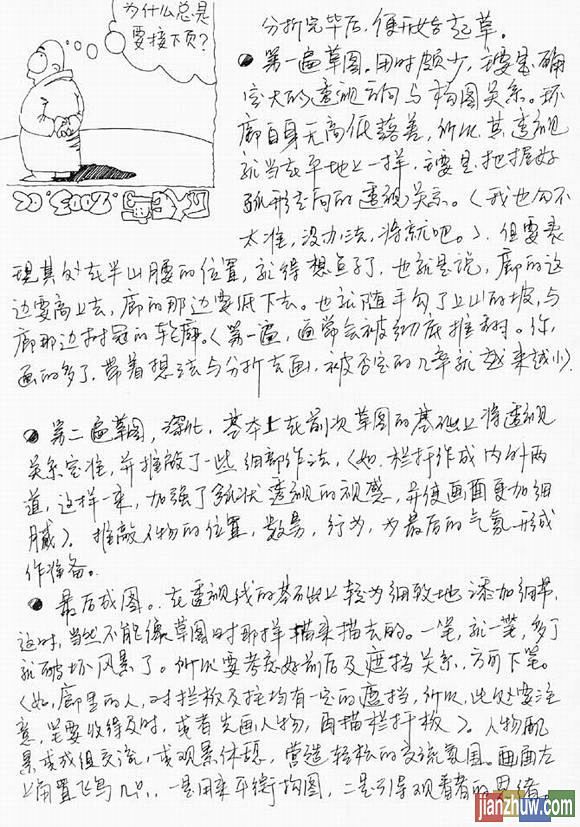 为什么总是
要接下页?
分析完毕后,便开始起草。
● 第一遍草图。用时颇少,主要是确
定大的透视方向与构图关系。环
廊自身无高低落差,所以其透视
就当在平地上一样,主要是把握好
弧形走向的透视关系。(我也勾不
太准,没办法,将就吧。)。但要表
现其处在半山腰的位置,就得想点子了,也就是说,廊的这
边要高上去,廊的那边要低下去。也就随手勾了上山的坡,与
廊那边树冠的轮廓。(第一遍,通常会被彻底推翻。你
画的多了,带着想法与分析去画,被否定的几率就越来越小)
● 第二遍草图,深化,基本上在前次草图的基础上将透视
关系定准,并推敲了一些细部作法,(如,栏杆作成内外两
道,这样一来,加强了弧状透视的视感,并使画面更加细
腻)。推敲人物的位置,数量,行为,为最后的气氛形成
作准备。
● 最后成图。在透视线的基础上较为细致地添加细节,
这时,当然不能像草图时那样描来描去的。一笔,就一笔,多了
就破坏风景了。所以要考虑好前后及遮挡关系,方可下笔。
(如,廊里的人,对拦板及柱均有一定的遮挡,所以,此处要注
意,笔要收得及时,或者先画人物,再描栏杆板)。人物
景或成组交流,或观景休憩,营造轻松的交流氛围。画面左
上角置飞鸟几只,一是用来平衡构图,二是引导观看者的思绪。
jianzhuw.com